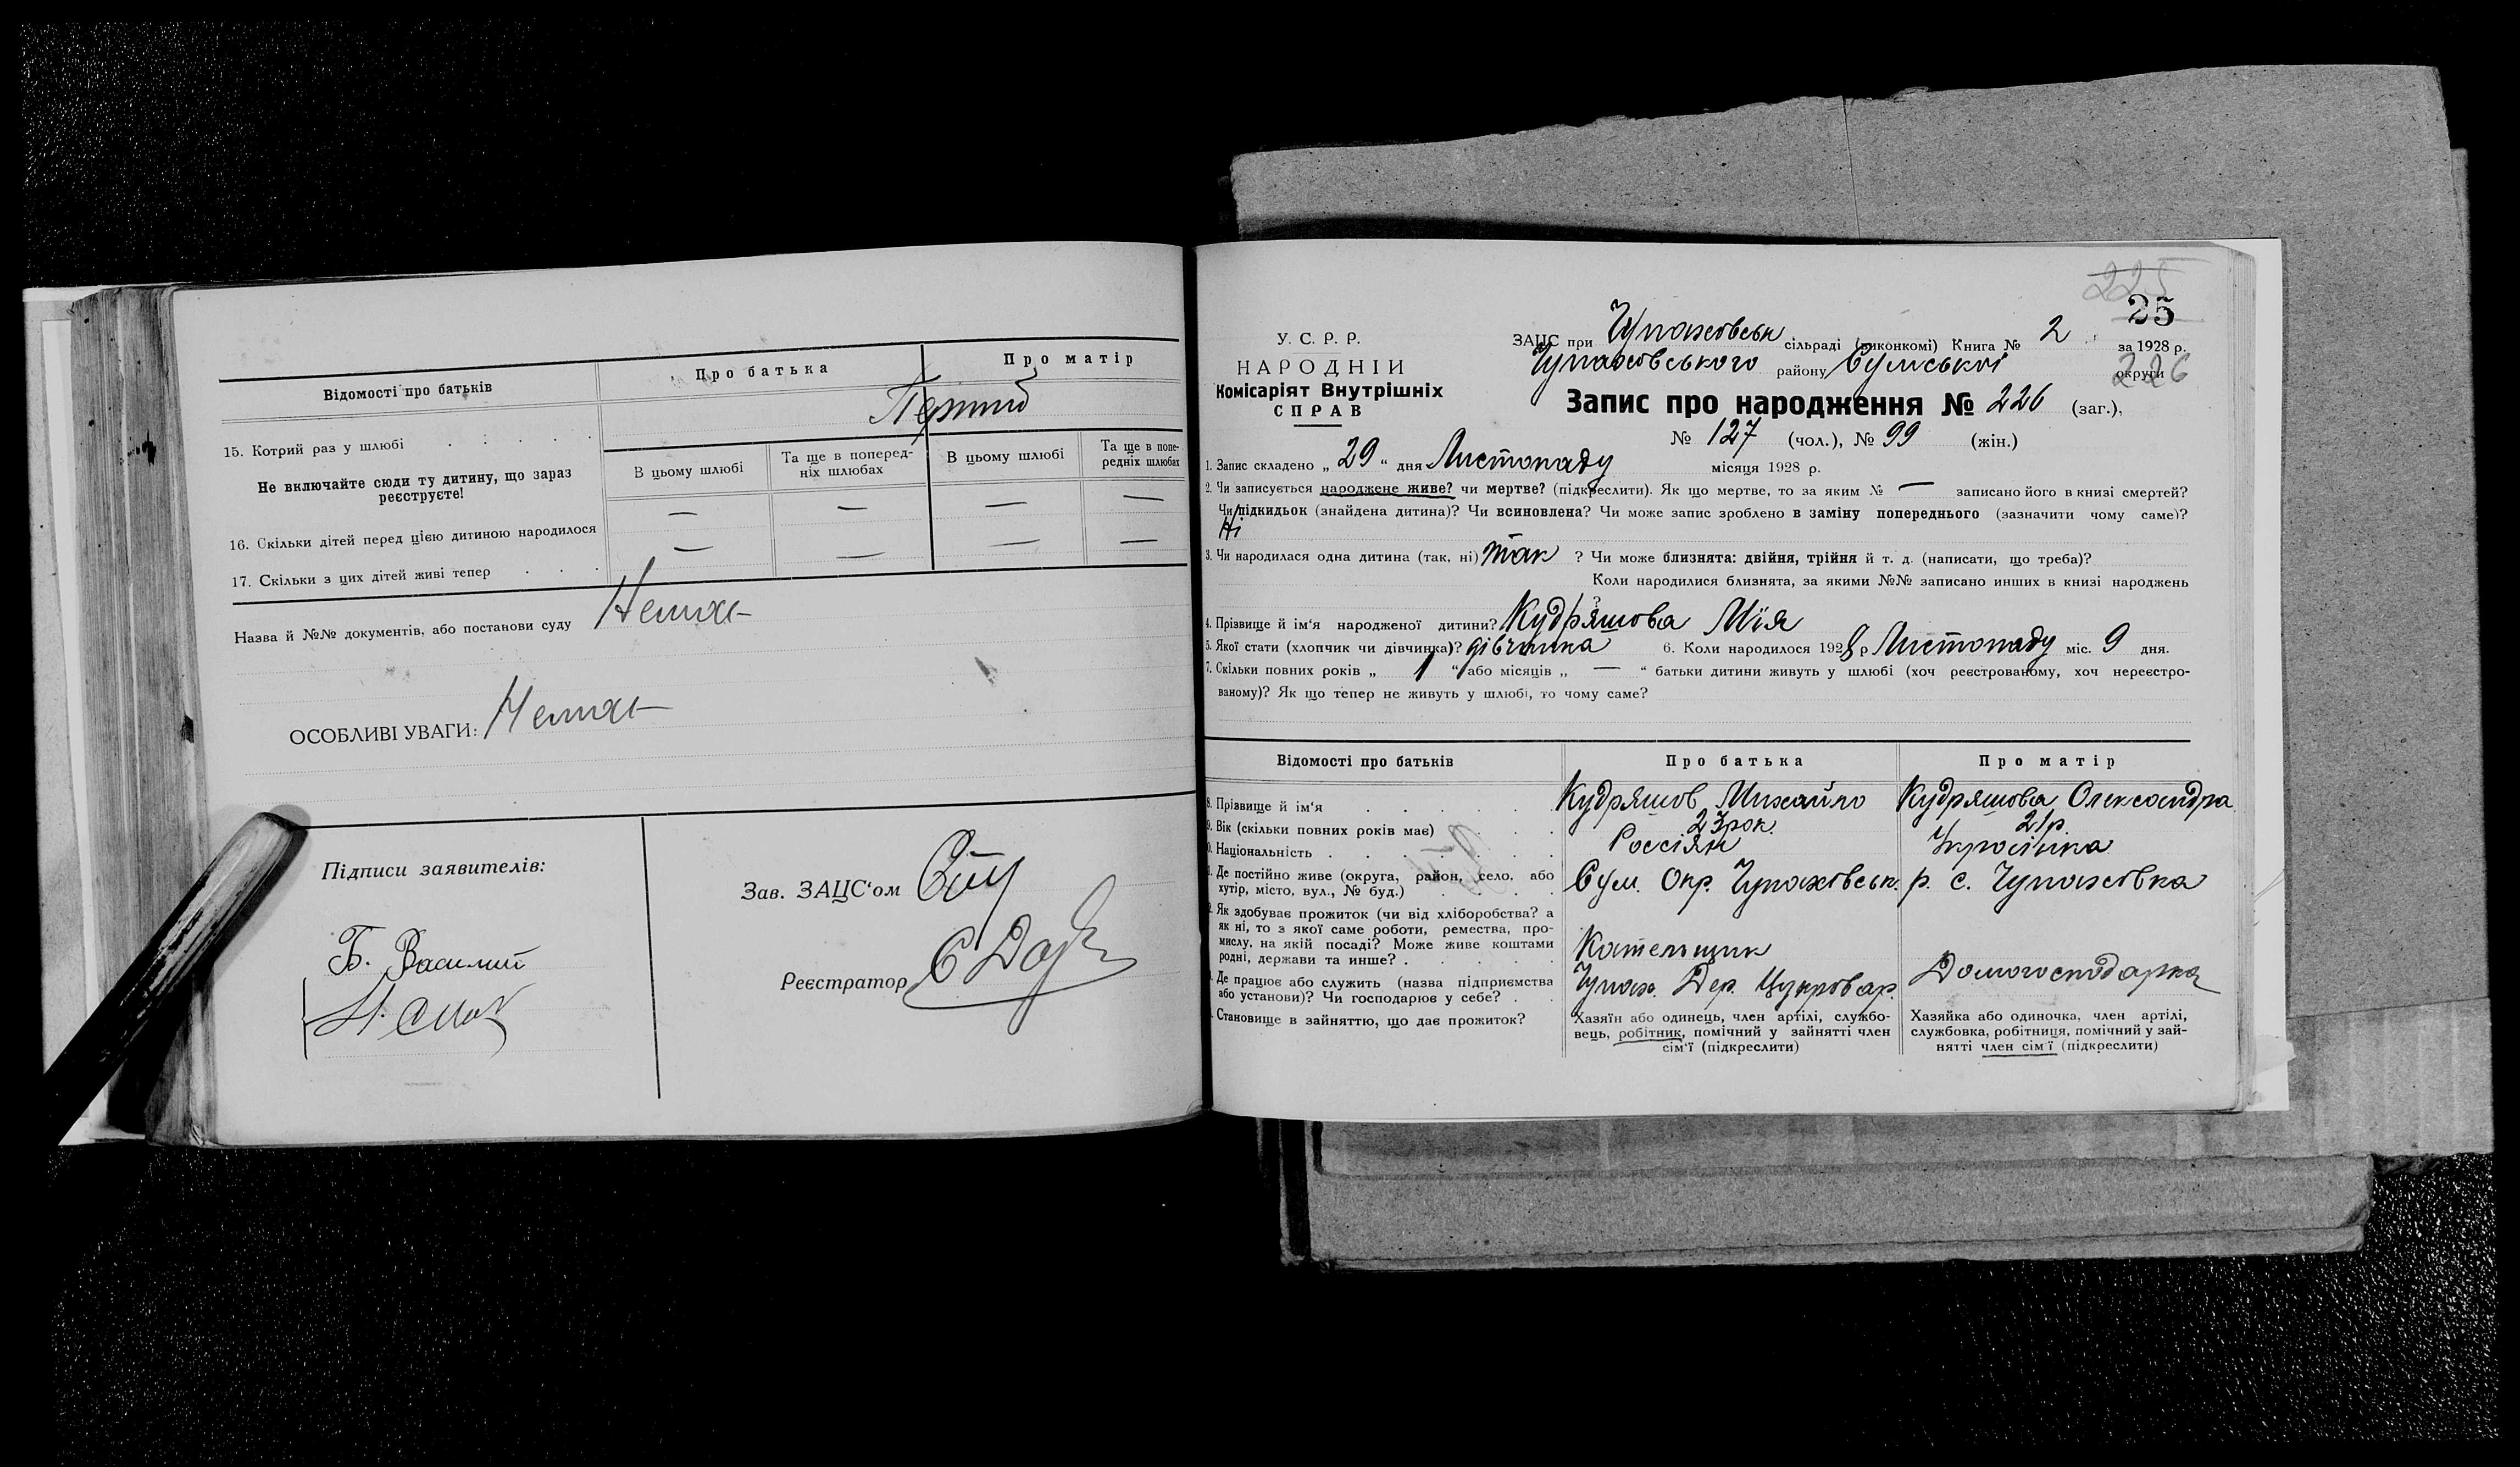 Відомості про батьків
Про батька
Про матір
15. Котрий раз у шлюбі
Перший
Не включайте сюди ту дитину, що зараз
реєструєте!
В цьому шлюбі
Та ще в поперед-
ніх шлюбах
В цьому шлюбі
Та ще в попе-
редніх шлюбах
16. Скільки дітей перед цією дитиною народилося — — — —
17. Скільки з цих дітей живі тепер — — — —
Назва й №№ документів, або постанови суду Немає
ОСОБЛИВІ УВАГИ: Немає
Підписи заявителів:
Б. Василий
Зав. ЗАЦС'ом
Реєстратор
225
25
У. С. Р. Р.
НАРОДНІЙ
Комісаріят Внутрішніх
СПРАВ
ЗАЦС при Чупаховськ сільраді (виконкомі) Книга № 2 за 1928 р.
Чупаховського району Сумської округи
226
Запис про народження № 226 (заг.),
№ 127 (чол.), № 99 (жін.)
1. Запис складено „ 29 “ дня Листопаду місяця 1928 р.
2. Чи записується народжене живе? чи мертве? (підкреслити). Як що мертве, то за яким № — записано його в книзі смертей?
Чи підкидьок (знайдена дитина)? Чи всиновлена? Чи може запис зроблено в заміну попереднього (зазначити чому саме)?
Ні
3. Чи народилася одна дитина (так, ні) так ? Чи може близнята: двійня, трійня й т. д. (написати, що треба)?
Коли народилися близнята, за якими №№ записано инших в книзі народжень
?
4. Прізвище й ім'я народженої дитини? Кудряшова Мія
5. Якої стати (хлопчик чи дівчинка)? дівчинка 6. Коли народилося 1928 р Листопаду міс. 9 дня.
7. Скільки повних років „ 1 “ або місяців „ — “ батьки дитини живуть у шлюбі (хоч реєстрованому, хоч нереєстро-
ваному)? Як що тепер не живуть у шлюбі, то чому саме?
Відомості про батьків
Про батька
Про матір
8. Прізвище й ім'я
Кудряшов Михайло
Кудряшова Олександра
9. Вік (скільки повних років має)
23 рок.
21 р.
0. Національність
Россіян
Украінка
1. Де постійно живе (округа, район, село, або
хутір, місто, вул., № буд.)
Сум. Окр. Чупаховськ. р. с. Чупаховка
2. Як здобуває прожиток (чи від хліборобства? а
як ні, то з якої саме роботи, ремества, про-
мислу, на якій посаді? Може живе коштами
родні, держави та инше?
Кательщик
Домогосподарка
Де працює або служить (назва підприємства
або установи)? Чи господарює у себе?
Чупах. Дер. Цукровар.
Становище в зайняттю, що дає прожиток?
Хазяїн або одинець, член артілі, службо-
вець, робітник, помічний у зайнятті член
сім'ї (підкреслити)
Хазяйка або одиночка, член артілі,
службовка, робітниця, помічний у зай-
нятті член сім'ї (підкреслити)